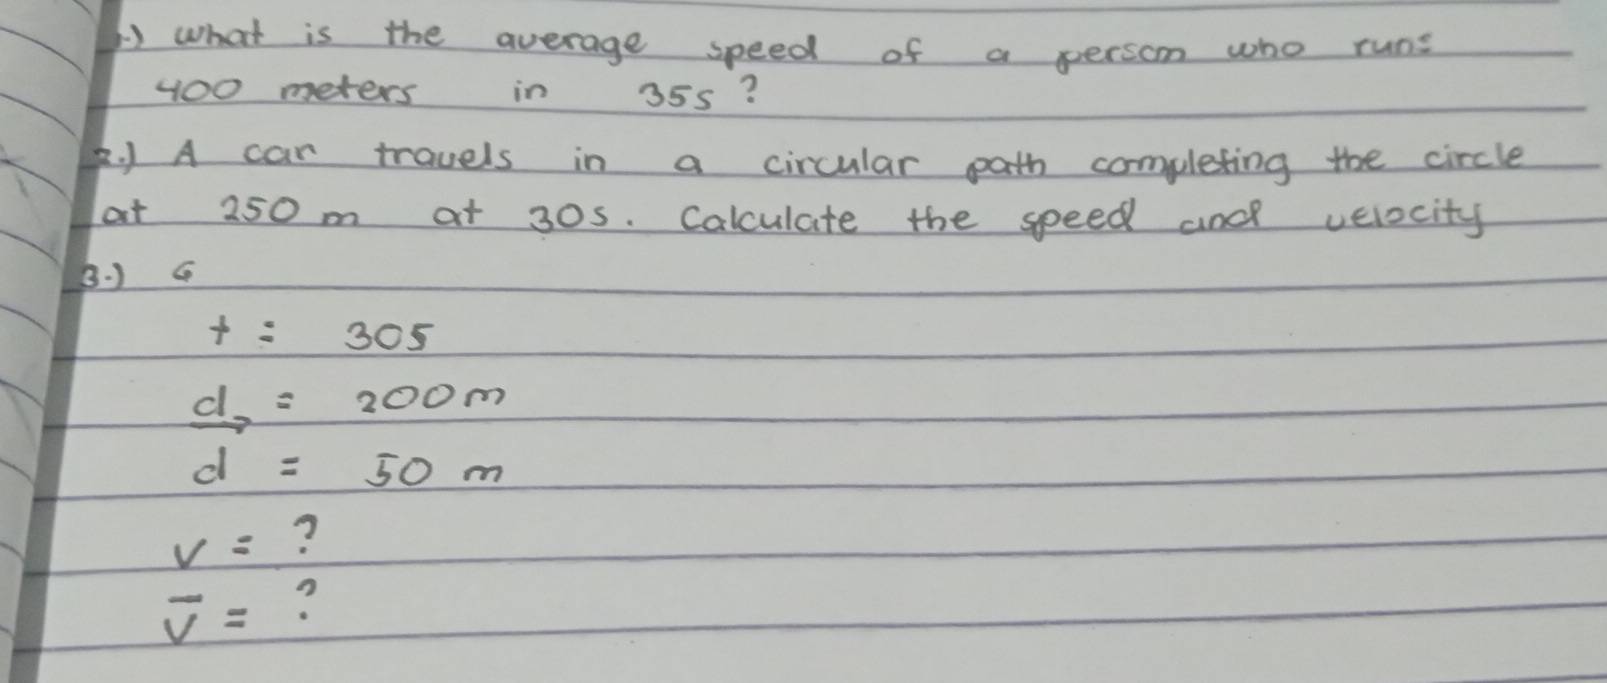 1.) what is the average speed of a person who runs
400 meters in 35s?
2.) A car travels in a circular path completing the circle
at 250 m at 30s. Calculate the speed and velocity
3.) G
t = 30s
d = 200m
d = 50 m
v = ?
v̅ = ?